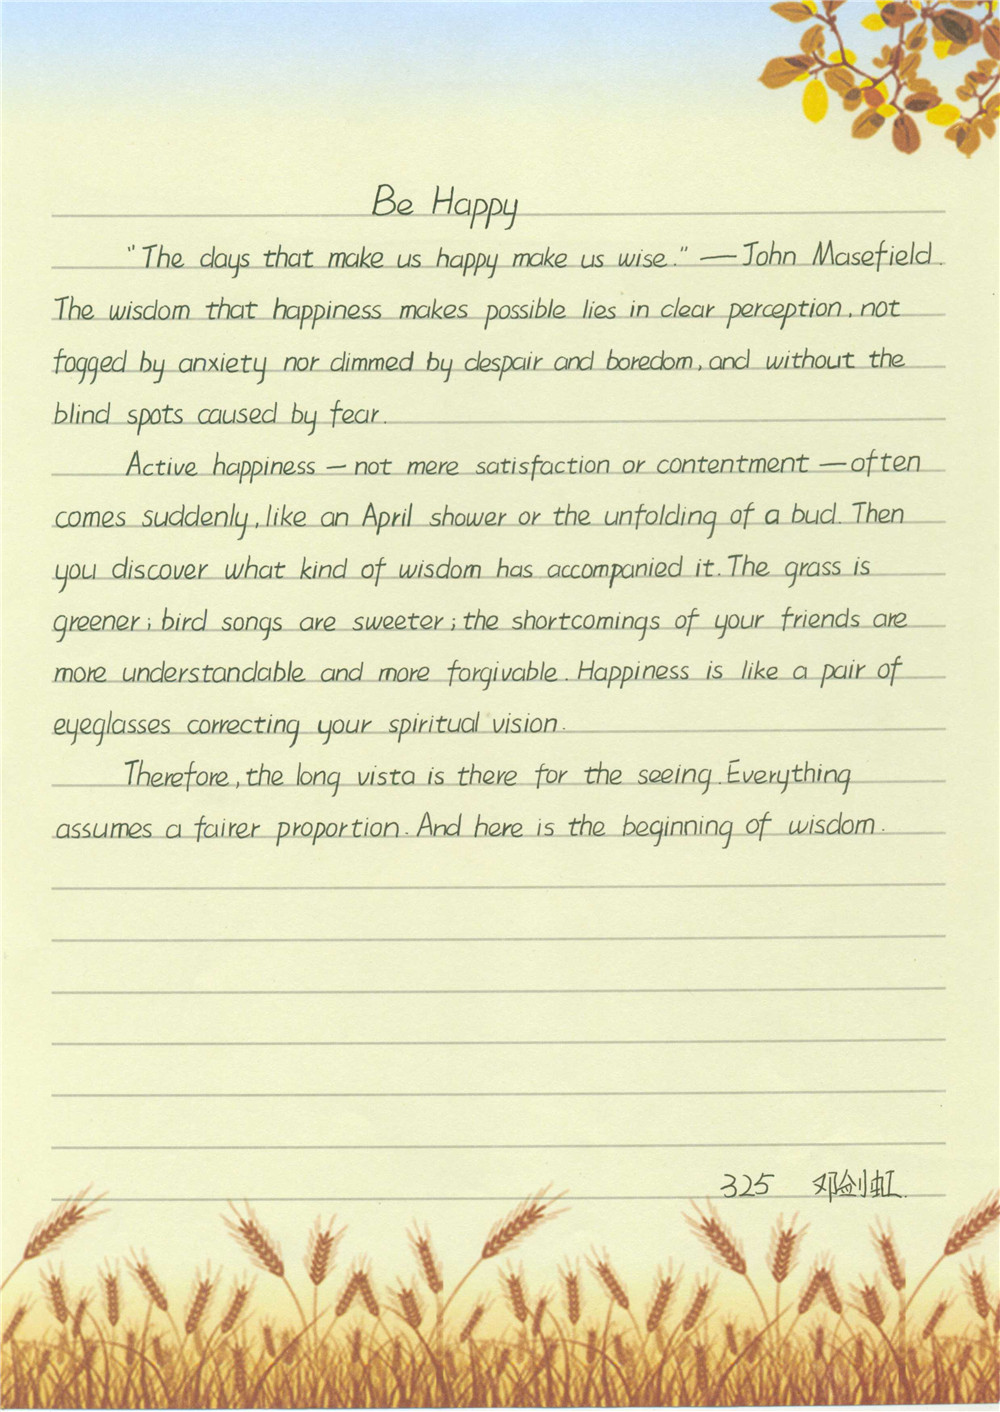 Be Happy
"The days that make us happy make us wise." — John Masefield.
The wisdom that happiness makes possible lies in clear perception, not
fogged by anxiety nor dimmed by despair and boredom, and without the
blind spots caused by fear.
Active happiness — not mere satisfaction or contentment — often
comes suddenly, like an April shower or the unfolding of a bud. Then
you discover what kind of wisdom has accompanied it. The grass is
greener; bird songs are sweeter; the shortcomings of your friends are
more understandable and more forgivable. Happiness is like a pair of
eyeglasses correcting your spiritual vision.
Therefore, the long vista is there for the seeing. Everything
assumes a fairer proportion. And here is the beginning of wisdom.
325 邓剑虹